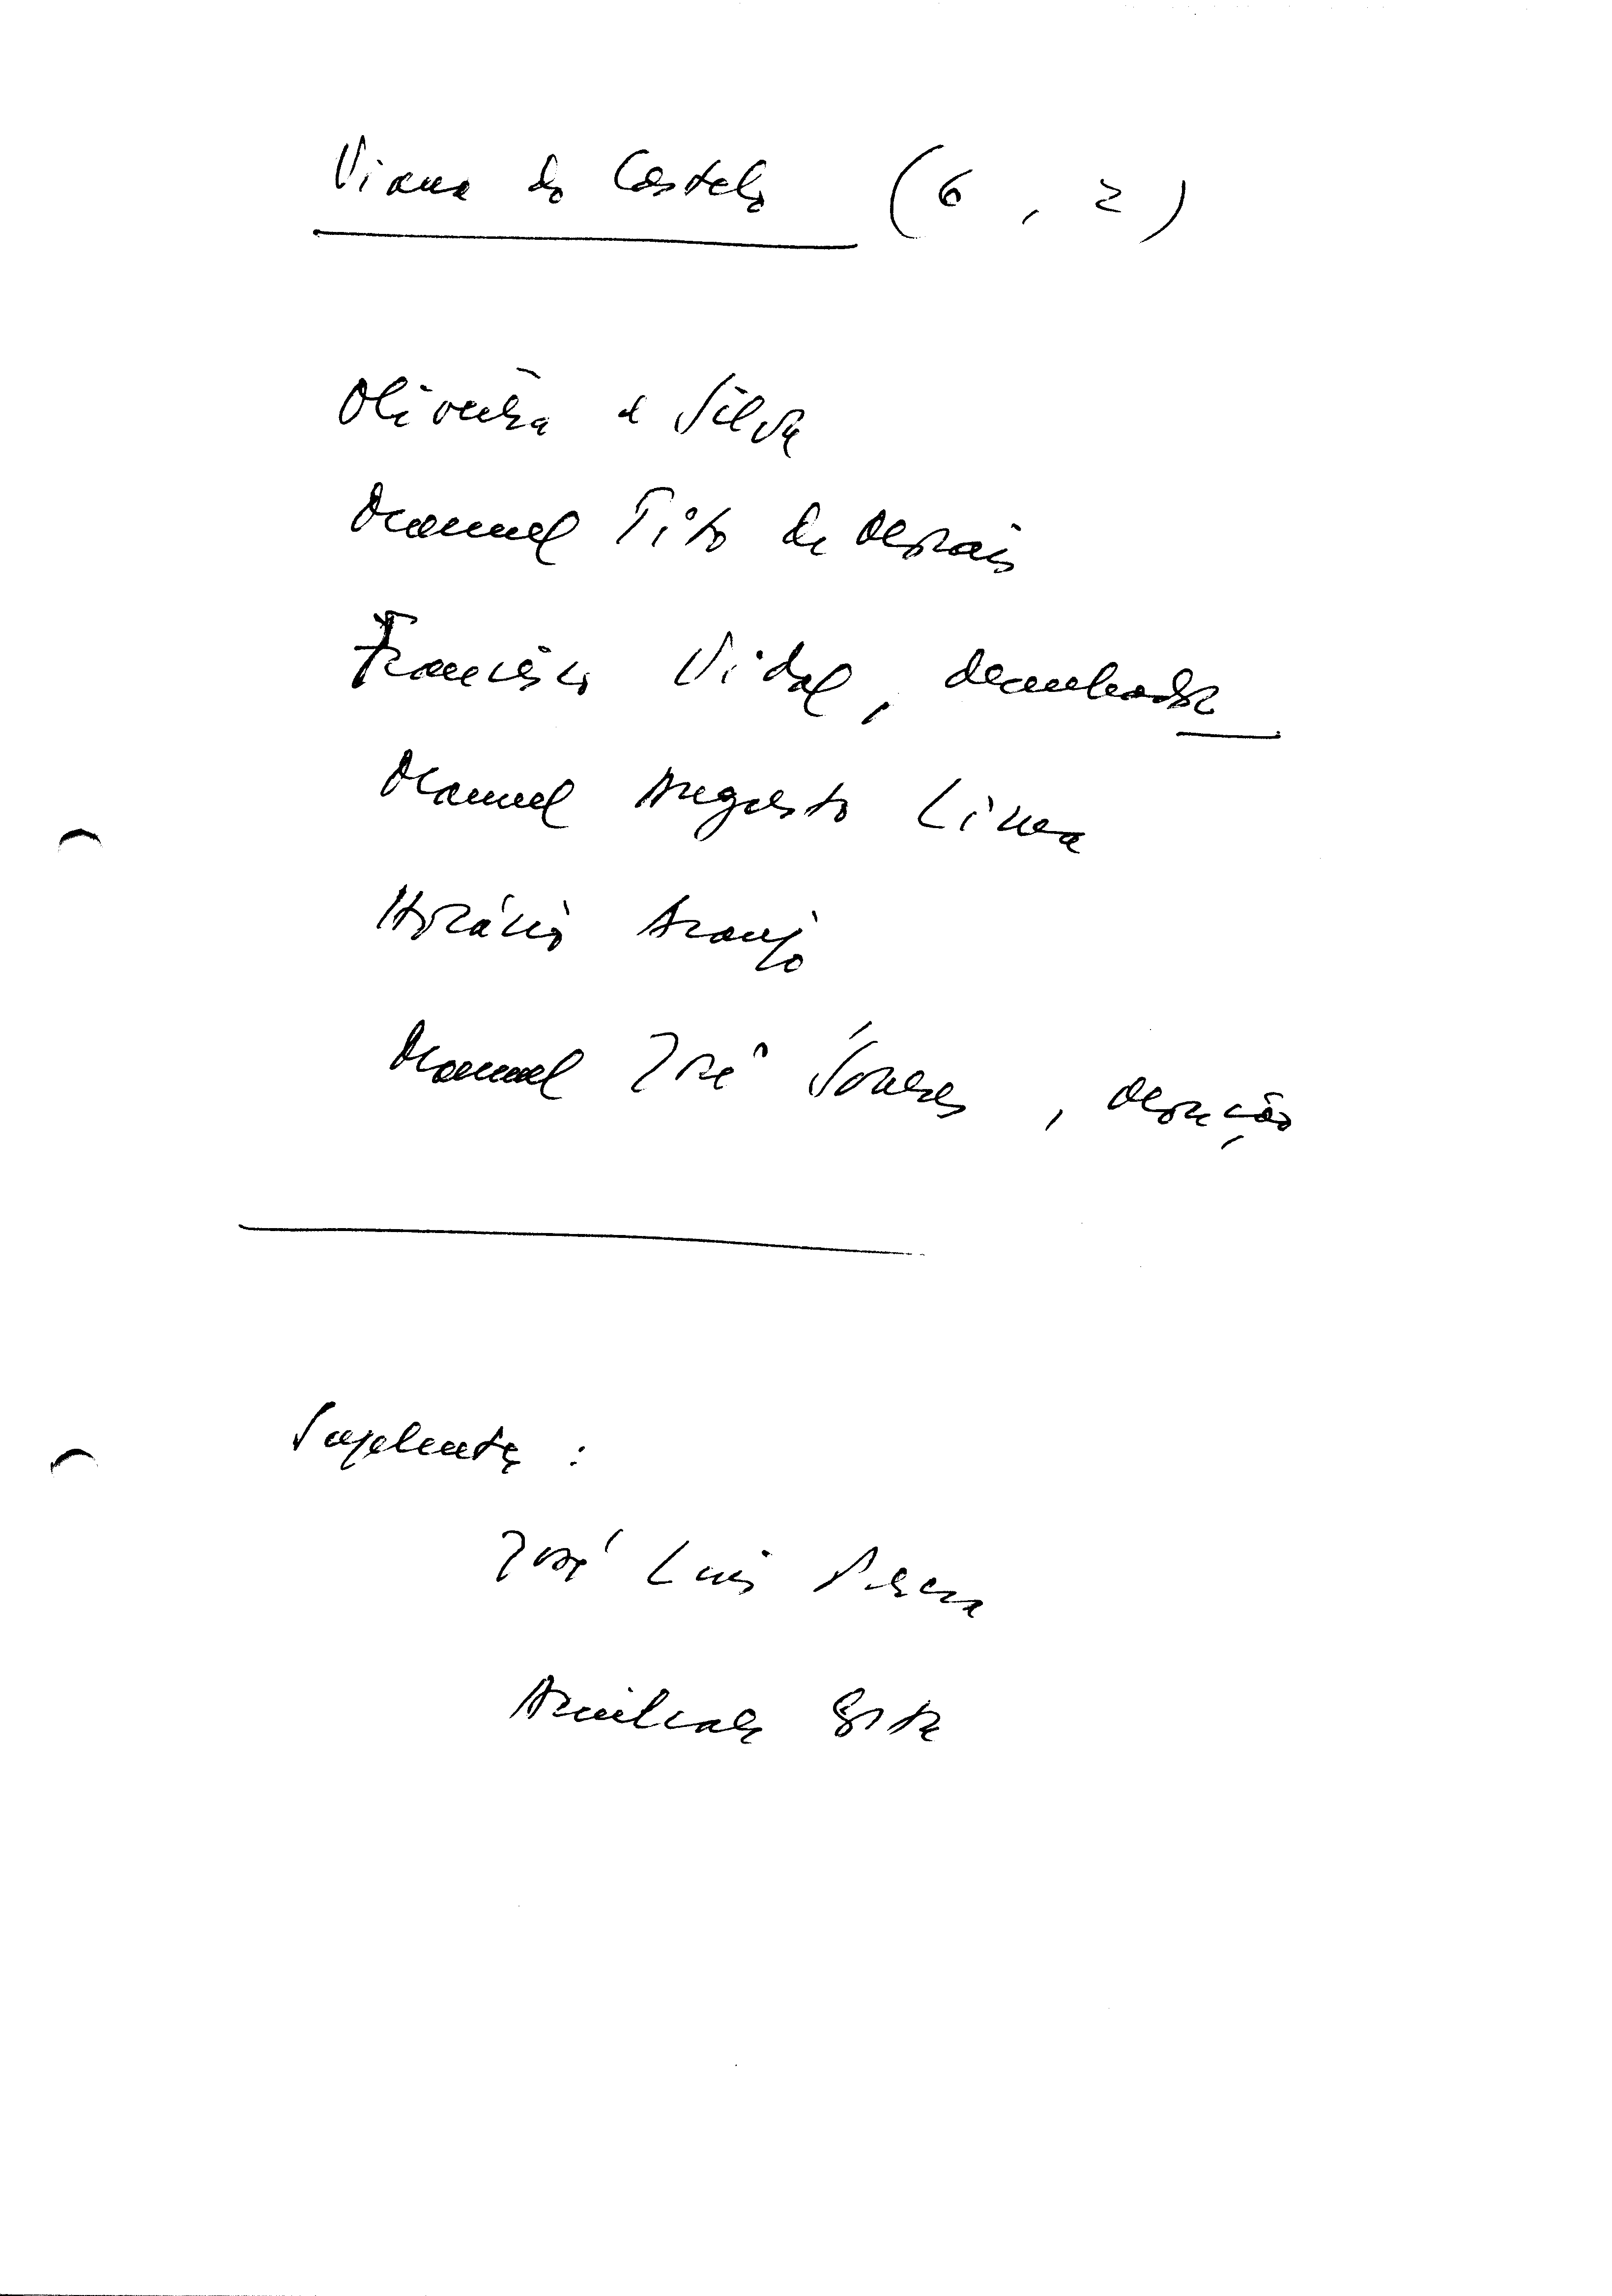 Viana do Castelo (6, 2)
Oliveira e Silva
Manuel Tito de Morais
Francisco Vidal,
Manuel Augusto Lima
Horácio Araujo
Manuel José Soares, Monção
Suplentes:
José Luis
Amilcar